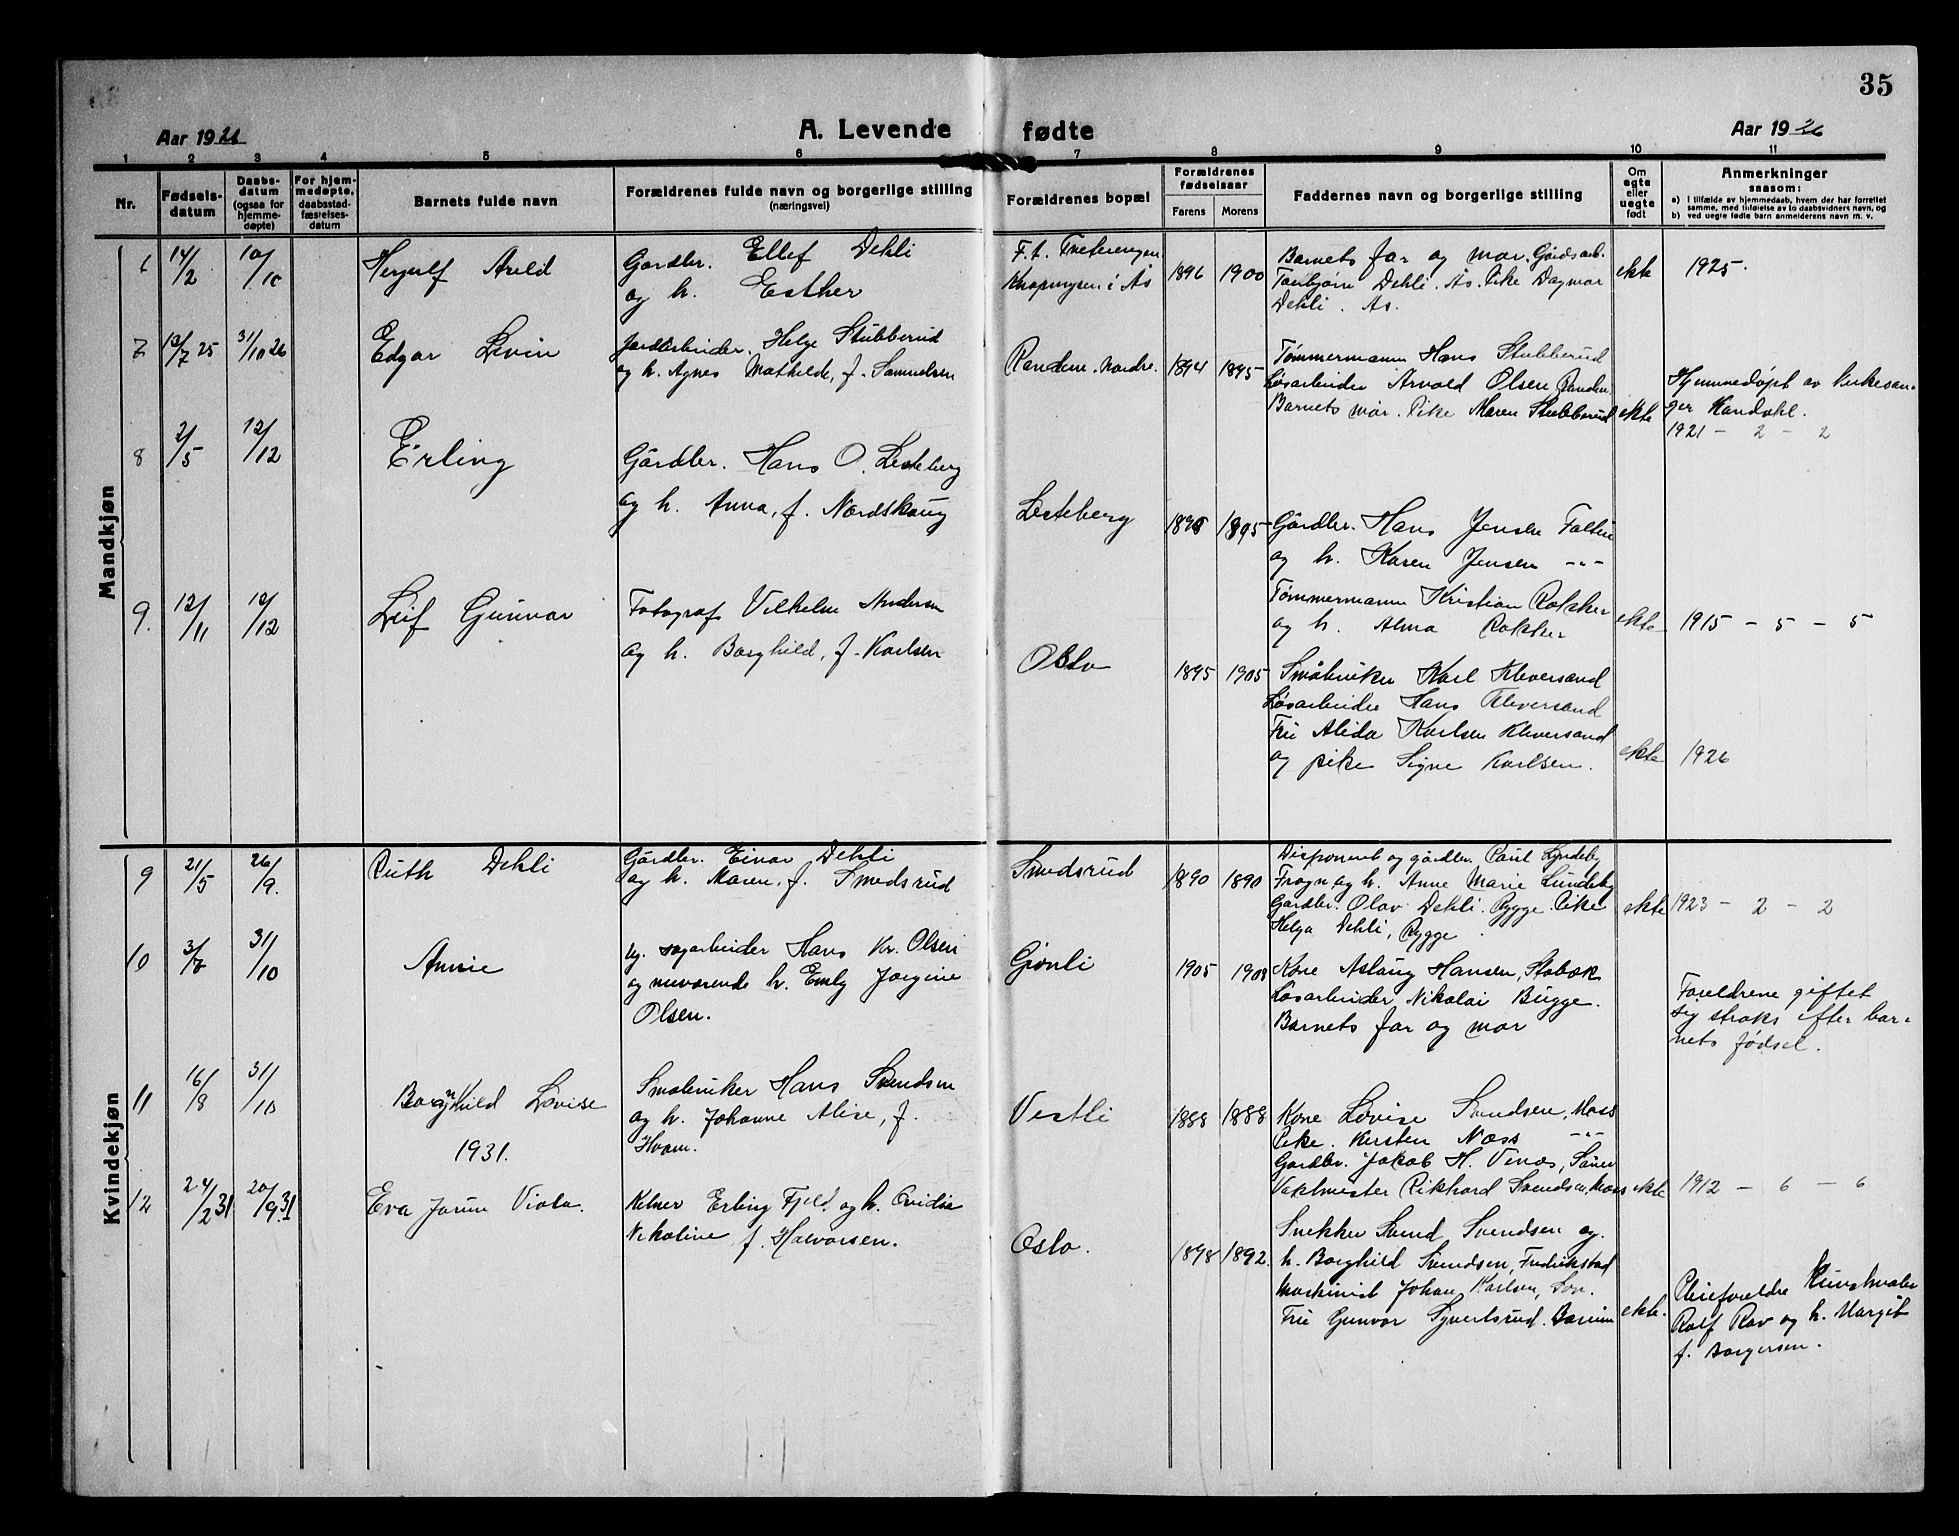 35
Aar 1926
A. Levende fødte
Aar 1926
1 2 3 4 5 6 7 8 9 10 11
Nr.
Fødselsdatum
Daabsdatum (ogsaa for hjemmedøpte)
For hjemmedøpte, daabsstadfæstelsesdatum
Barnets fulde navn
Forældrenes fulde navn og borgerlige stilling
(næringsvei)
Forældrenes bopæl
Forældrenes fødselsaar
Farens Morens
Faddernes navn og borgerlige stilling
Om egte eller uegte født
Anmerkninger
saasom:
a) I tilfælde av hjemmedaab, hvem der har forrettet
samme, med tilføielse av to daabsvidners navn, og
b) ved uegte fødte barn anmelderens navn m. v.
Mandkjøn
6 14/2 10/10 Herjulf Areld Gårdbr. Ellef Dehli
og h. Esther
F. t.
i Ås 1896 1900
Barnets far og mor. Gårdsarb.
Torbjørn Dehli. Ås. Pike Dagmar
Dehli. Ås.
ekte 1925.
7 12/7 25 31/10 26 Edgar Levin Jordarbeider. Helge Stubberud
og h. Agnes Mathilde, f. Samuelsen
Randem. Nordre. 1894 1895
Tømmermann Hans Stubberud
Løsarbeider Arnold Olsen Randem
Barnets mor. Pike Maren Stubberud
ekte
Hjemmedøpt av kirkesan-
ger Kandahl.
1921 - 2 - 2
8 2/5 12/12 Erling Gårdbr. Hans O. Lesteberg
og h. Anna, f. Nordskaug
Lesteberg 1895 1895
Gårdbr. Hans Jensen
og h. Karen Jensen -"-
Tømmermann Kristian Rokker
og h. Alma Rokker
ekte 1915 - 5 - 5
9. 12/11 12/12 Leif Gunnar Fotograf Vilhelm Andersen
og h. Borghild, f. Karlsen
Oslo 1895 1905
Småbruker Karl Kleversand
Løsarbeider Hans Kleversand
Fru Alida Karlsen Kleversand
og pike Signe Karlsen.
ekte 1926
Kvindekjøn
9 21/5 26/9. Ruth Dehli Gårdbr. Einar Dehli
og h. Maren, f. Smedsrud
Smedsrud 1890 1890
Disponent og gårdbr. Paul Lyndeby
Frogn og h. Anne Marie Lundeby
Gårdbr. Olav Dehli. Rygge. Pike
Helga Dehli, Rygge.
ekte 1923 - 2 - 2
10 3/7 31/10 Annie Ug. sagarbeider Hans Kr. Olsen
og nuværende h. Emly Jørgine
Olsen.
Grønli 1905 1908
Kone Aslaug Hansen, Stabæk
Løsarbeider Nikolai Bugge.
Barnets far og mor
Foreldrene giftet
sig straks efter bar-
nets fødsel.
11 16/8 31/10 Borghild Lovise Småbruker Hans Svendsen
og h. Johanne Alise, f.
Hvam.
Vestli 1888 1888
Kone Lovise Svendsen, Moss
Pike. Kirsten Næss -"-
Gårdbr. Jakob H. Vinås, Såner
Vaktmester Rikhard Svendsen, Moss
ekte 1912 - 6 - 6
1931.
12 24/2 31 20/9. 31 Eva Jorun Viola. Kelner Erling Fjeld og h. Ovidia
Nikoline f. Halvorsen.
Oslo. 1898 1892.
Snekker Svend Svendsen og
h. Borghild Svendsen, Fredrikstad
Maskinist Johan Karlsen, Son.
Fru Gunvor Syvertsrud. Bærum
ekte.
Pleieforeldre Kunstmaler
Rolf Rav og h. Margit
f. Borgersen.